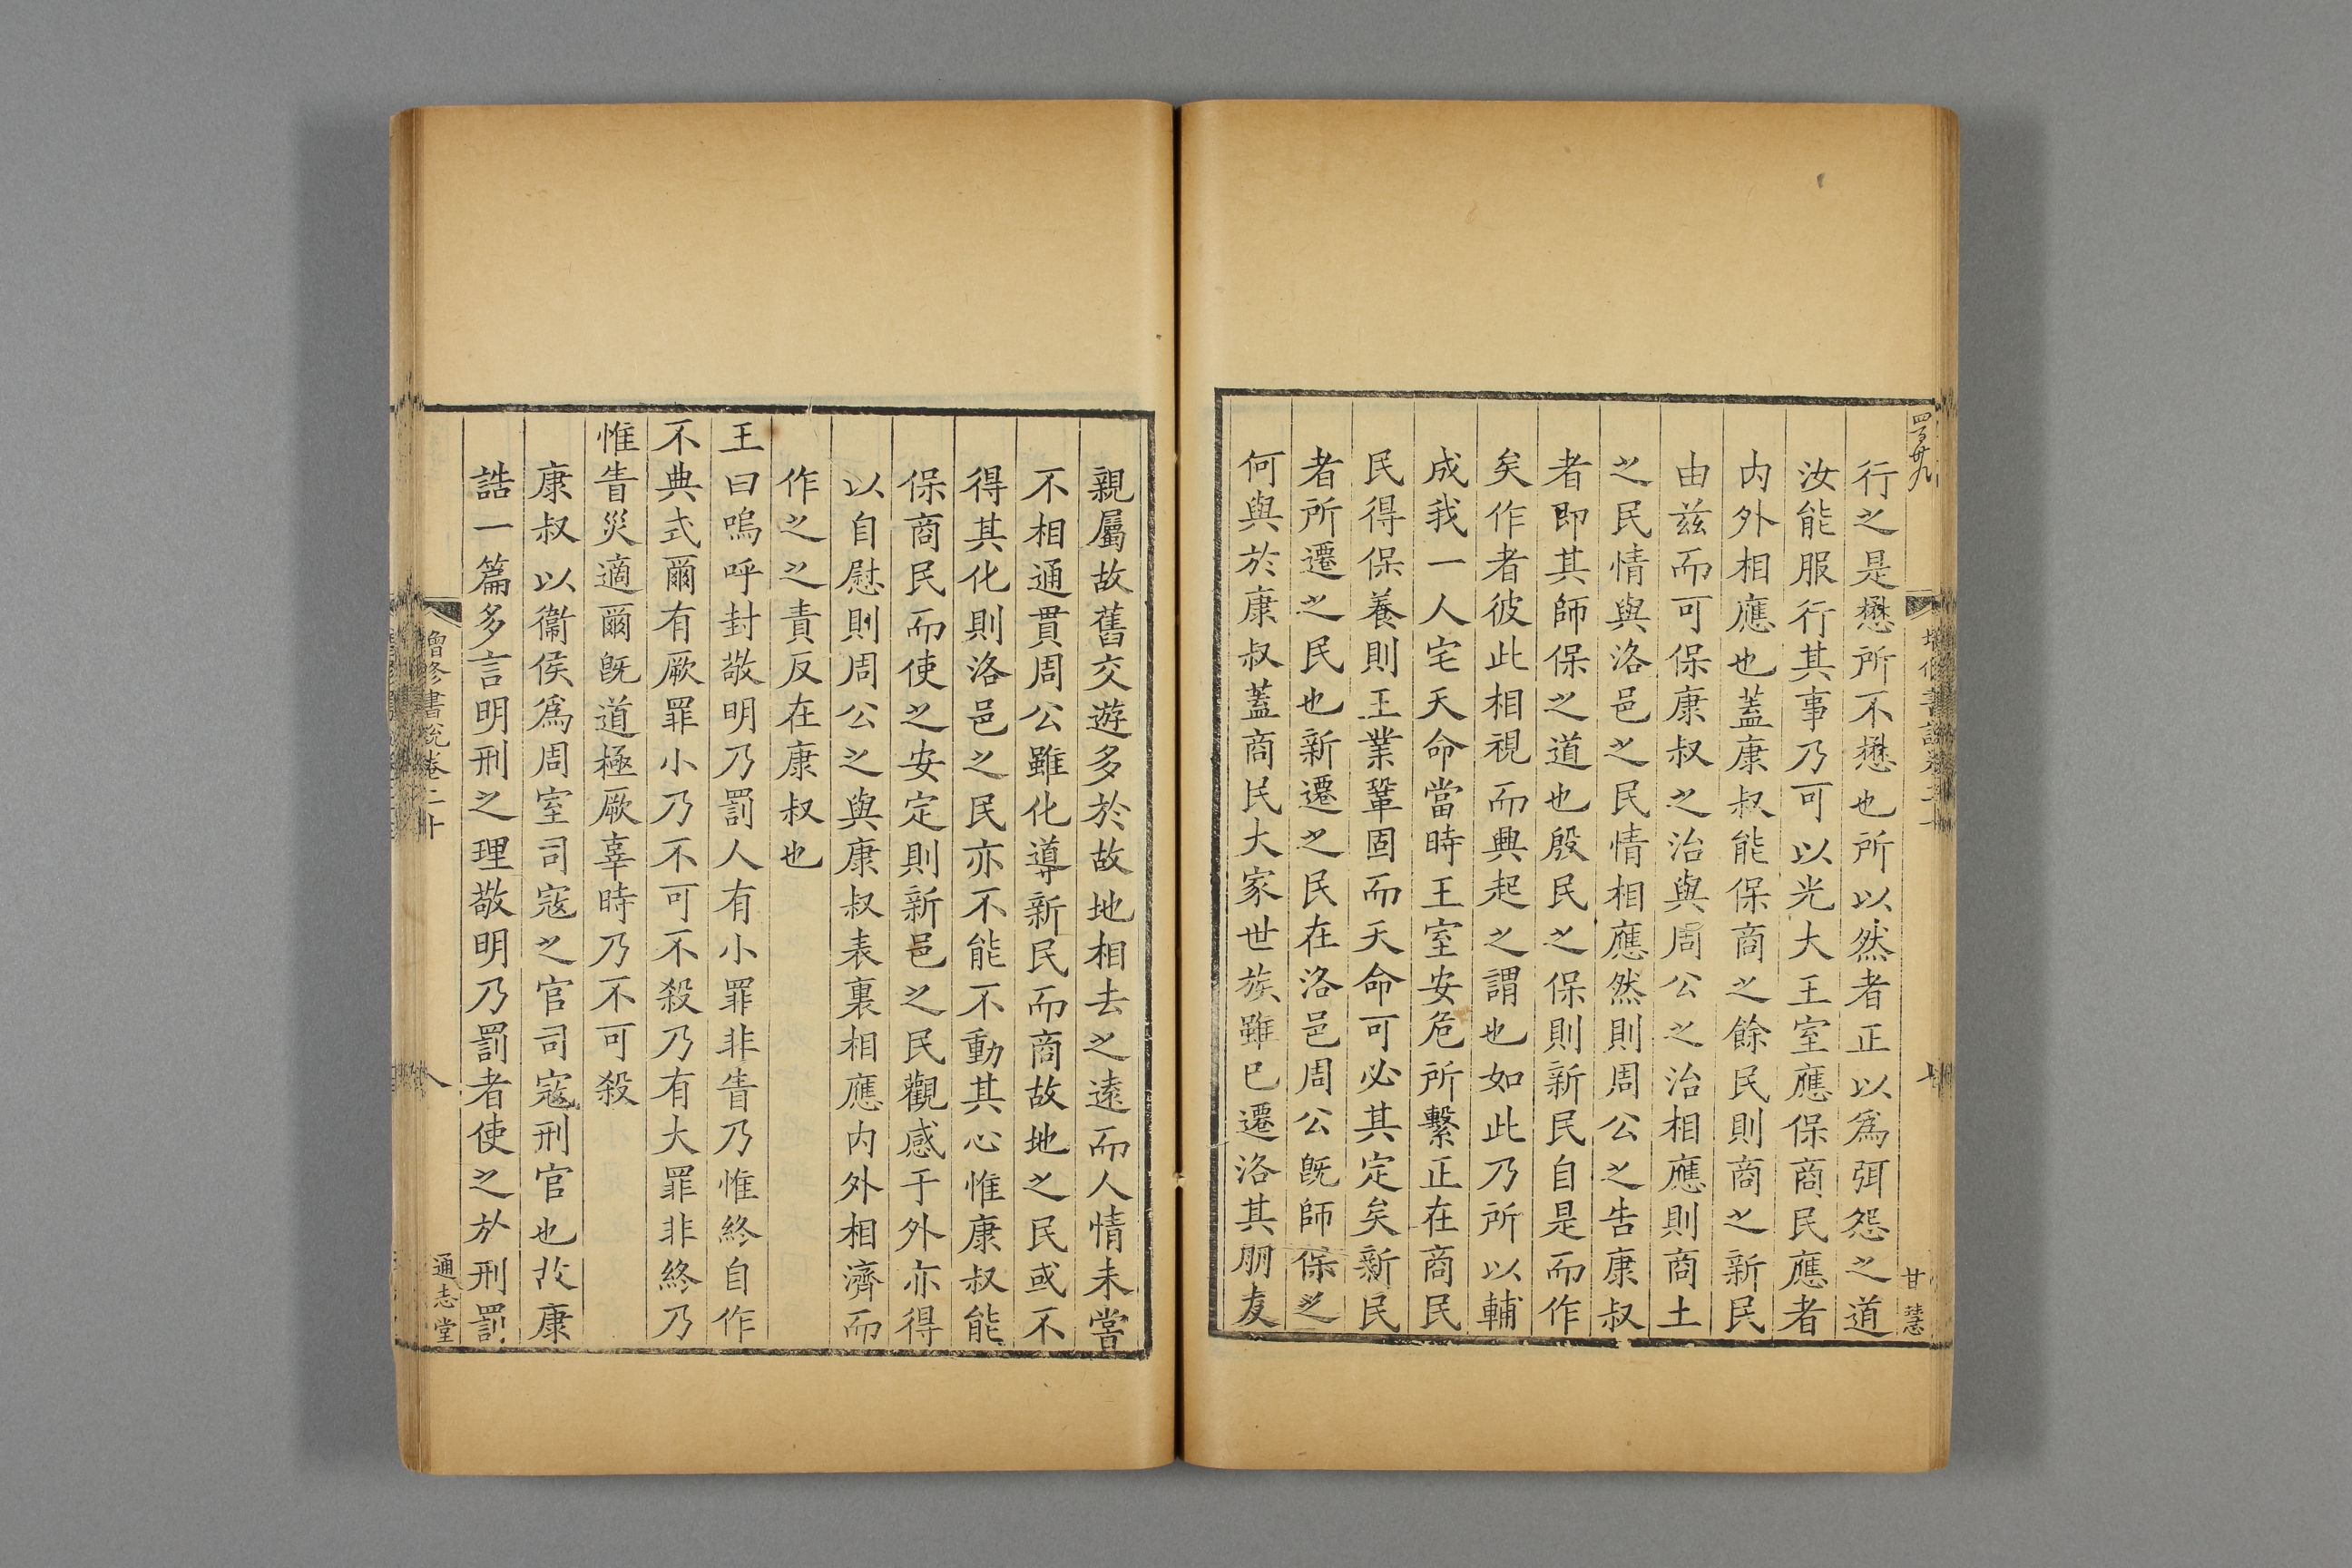 行之是懋所不懋也所以然者正以爲弭怨之道
汝能服行其事乃可以光大王室應保商民應者
内外相應也蓋康叔能保商之餘民則商之新民
由兹而可保康叔之治與周公之治相應則商土
之民情與洛邑之民情相應然則周公之告康叔
者即其師保之道也殷民之保則新民自是而作
矣作者彼此相視而興起之謂也如此乃所以輔
成我一人宅天命當時王室安危所繫正在商民
民得保養則王業鞏固而天命可必其定矣新民
者所遷之民也新遷之民在洛邑周公旣師保之
何與於康叔蓋商民大家世族雖已遷洛其朋友
親屬故舊交遊多於故地相去之遠而人情未嘗
不相通貫周公雖化導新民而商故地之民或不
得其化則洛邑之民亦不能不動其心惟康叔能
保商民而使之安定則新邑之民觀感于外亦得
以自慰則周公之與康叔表裏相應内外相濟而
作之之責反在康叔也
王曰嗚呼封敬明乃罰人有小罪非眚乃惟終自作
不典式爾有厥罪小乃不可不殺乃有大罪非終乃
惟眚災適爾旣道極厥辜時乃不可殺
康叔以衞侯爲周室司寇之官司寇刑官也故康
誥一篇多言明刑之理敬明乃罰者使之於刑罰
增修書說卷二十
八
通志堂